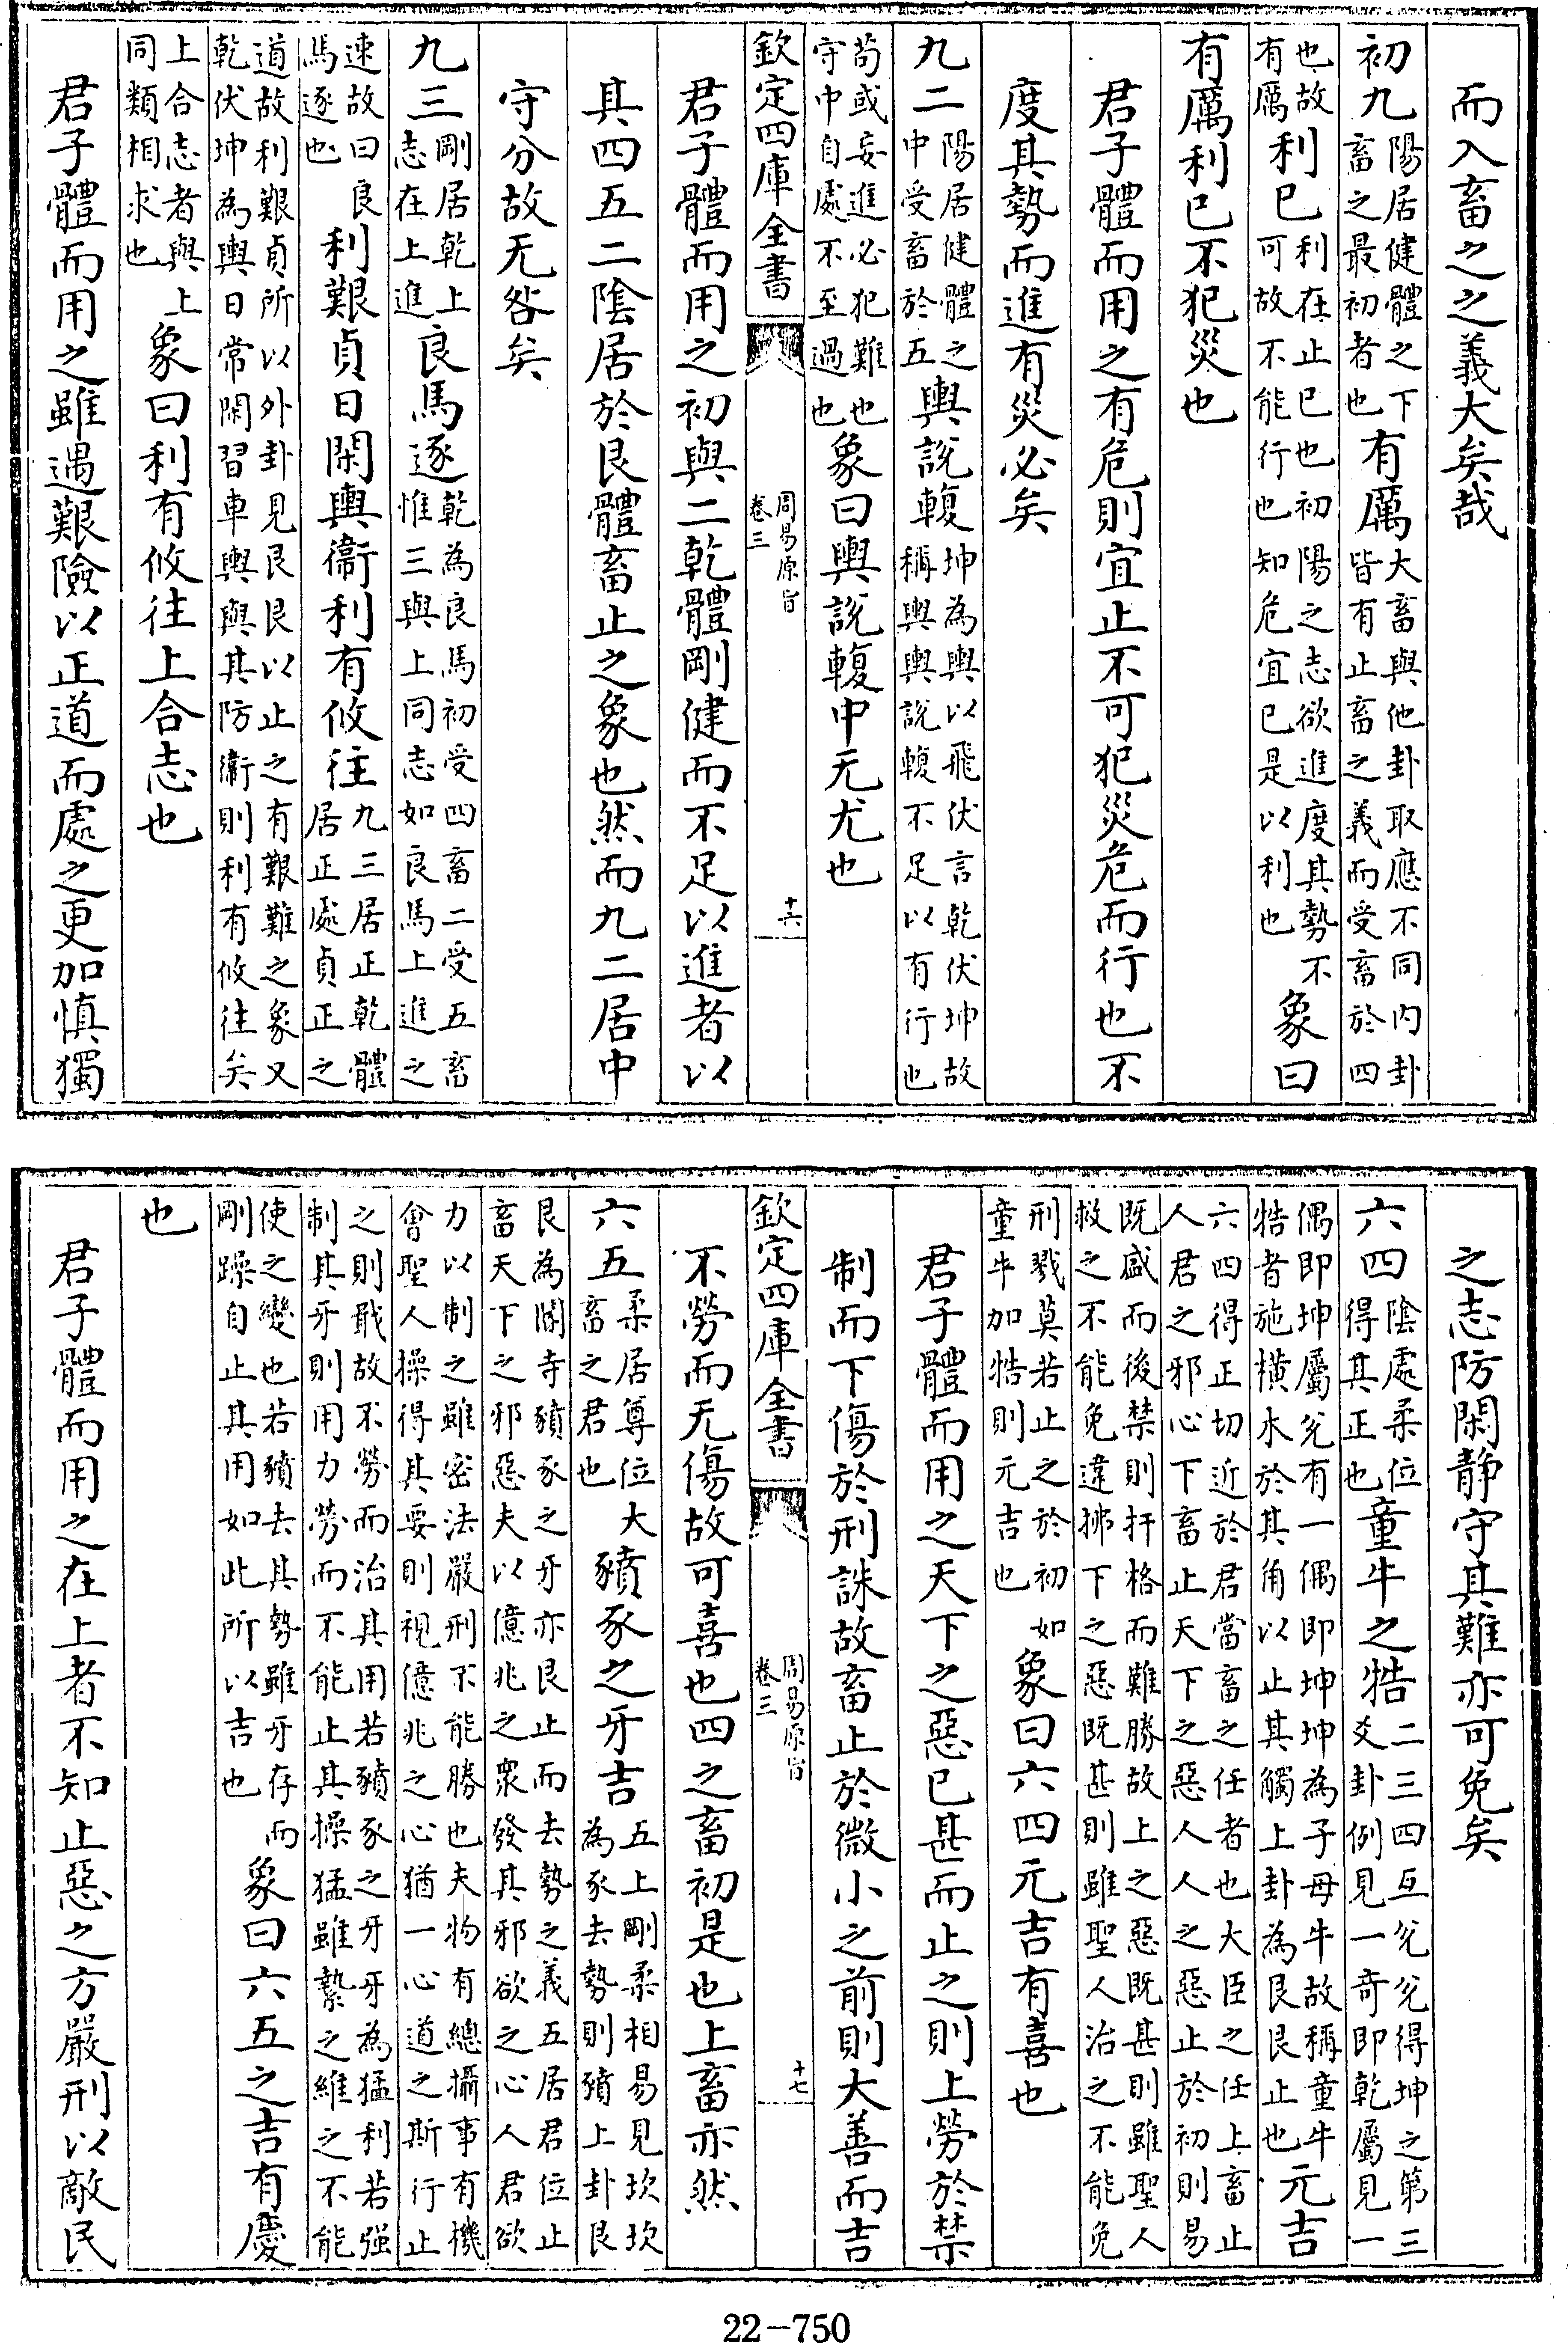 而入畜之之義大矣哉
初九陽居健體之下畜之最初者也有厲大畜與他卦取應不同内卦皆有止畜之義而受畜於四
也故有厲利已利在止已也初陽之志欲進度其勢不可故不能行也知危宜已是以利也象曰
有厲利已不犯災也
君子體而用之有危則宜止不可犯災危而行也不
度其勢而進有災必矣
九二陽居健體之中受畜於五輿說輹坤為輿以飛伏言乾伏坤故稱輿輿說輹不足以有行也
苟或妄進必犯難也守中自處不至過也象曰輿說輹中无尤也
欽定四庫全書
周易原旨
卷三
十六
君子體而用之初與二乾體剛健而不足以進者以
其四五二陰居於艮體畜止之象也然而九二居中
守分故无咎矣
九三剛居乾上志在上進良馬逐乾為良馬初受四畜二受五畜惟三與上同志如良馬上進之
速故曰良馬逐也利艱貞日閑輿衞利有攸往九三居正乾體居正處貞正之
道故利艱貞所以外卦見艮艮以止之有艱難之象又乾伏坤為輿日常閑習車輿與其防衞則利有攸往矣
上合志者與上同類相求也象曰利有攸往上合志也
君子體而用之雖遇艱險以正道而處之更加慎獨
之志防閑静守其難亦可免矣
六四陰處柔位得其正也童牛之牿二三四互兊兊得坤之第三爻卦例見一奇即乾屬見一
偶即坤屬兊有一偶即坤坤為子母牛故稱童牛牿者施横木於其角以止其觸上卦為艮艮止也元吉
六四得正切近於君當畜之任者也大臣之任上畜止人君之邪心下畜止天下之惡人人之惡止於初則易
既盛而後禁則扞格而難勝故上之惡既甚則雖聖人救之不能免違拂下之惡既甚則雖聖人治之不能免
刑戮莫若止之於初如童牛加牿則元吉也象曰六四元吉有喜也
君子體而用之天下之惡已甚而止之則上勞於禁
制而下傷於刑誅故畜止於微小之前則大善而吉
欽定四庫全書
周易原旨
卷三
十七
不勞而无傷故可喜也四之畜初是也上畜亦然
六五柔居尊位大畜之君也豶豕之牙吉五上剛柔相易見坎坎為豕去勢則豶上卦艮
艮為閽寺豶豕之牙亦艮止而去勢之義五居君位止畜天下之邪惡夫以億兆之衆發其邪欲之心人君欲
力以制之雖密法嚴刑不能勝也夫物有總攝事有機會聖人操得其要則視億兆之心猶一心道之斯行止
之則戢故不勞而治其用若豶豕之牙牙為猛利若强制其牙則用力勞而不能止其操猛雖縶之維之不能
使之變也若豶去其勢雖牙存而剛躁自止其用如此所以吉也象曰六五之吉有慶
也
君子體而用之在上者不知止惡之方嚴刑以敵民
22-750